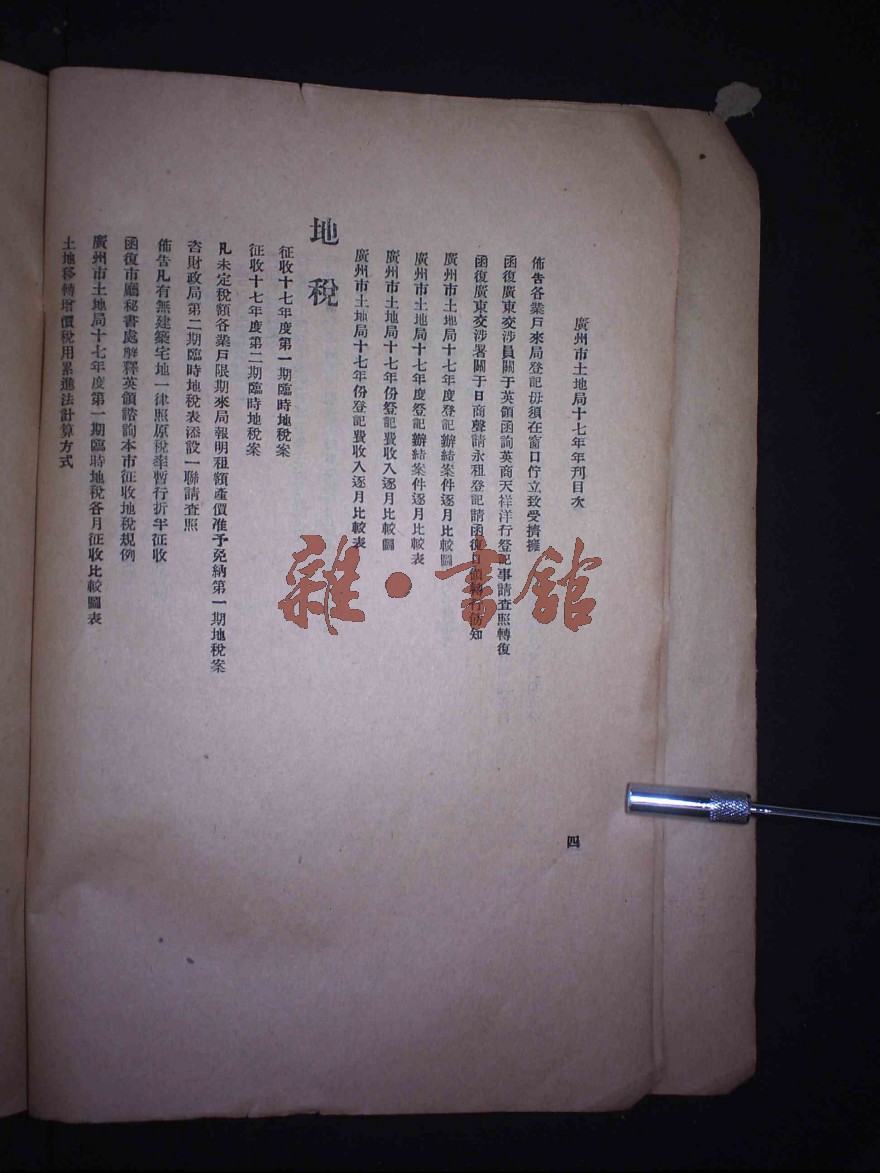 廣州市土地局十七年年刊目次
四
佈告各業戶來局登記毋須在窗口佇立致受擠擁
函復廣東交涉員關于英領函詢英商天祥洋行登記事請查照轉復
函復廣東交涉署關于日商聲請永租登記請函復日領轉行飭知
廣州市土地局十七年度登記辦結案件逐月比較圖
廣州市土地局十七年度登記辦結案件逐月比較表
廣州市土地局十七年份登記費收入逐月比較圖
廣州市土地局十七年份登記費收入逐月比較表
地稅
征收十七年度第一期臨時地稅案
征收十七年度第二期臨時地稅案
凡未定稅額各業戶限期來局報明租額產價准予免納第一期地稅案
咨財政局第二期臨時地稅表添設一聯請查照
佈告凡有無建築宅地一律照原稅率暫行折半征收
函復市廳秘書處解釋英領諮詢本市征收地稅規例
廣州市土地局十七年度第一期臨時地稅各月征收比較圖表
土地移轉增價稅用累進法計算方式
雜·書館